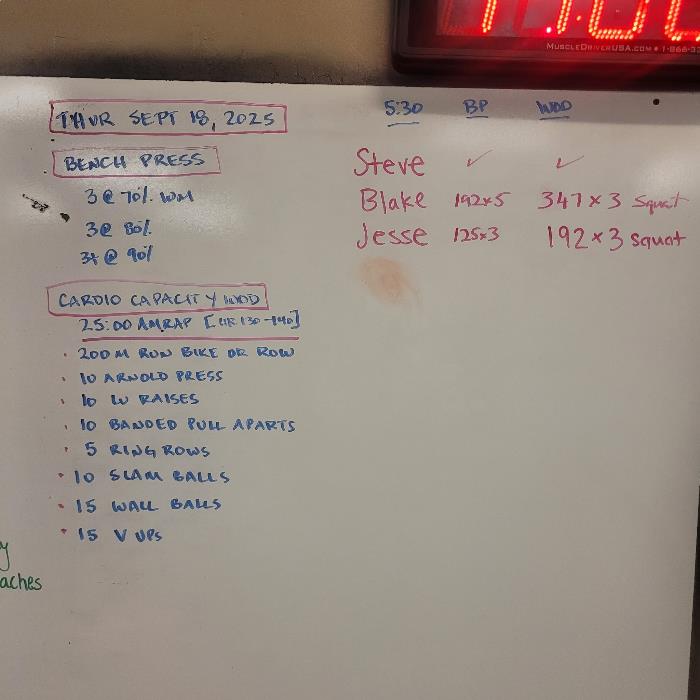 MUSCLEDRIVERUSA.COM • 1-866-
THUR SEPT 18, 2025
BENCH PRESS
3 @ 70% WM
3 @ 80%
3+ @ 90%
CARDIO CAPACITY WOD
25:00 AMRAP [HR 130-140]
• 200 M RUN BIKE OR ROW
• 10 ARNOLD PRESS
• 10 LU RAISES
• 10 BANDED PULL APARTS
• 5 RING ROWS
• 10 SLAM BALLS
• 15 WALL BALLS
• 15 V UPS
5:30 BP WOD
Steve ✓ ✓
Blake 192x5 347 x 3 Squat
Jesse 125x3 192 x 3 squat
y
aches